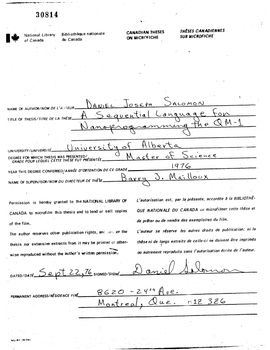 30814
National Library of Canada
Bibliothèque nationale du Canada
CANADIAN THESES ON MICROFICHE
THÈSES CANADIENNES SUR MICROFICHE
NAME OF AUTHOR/NOM DE L'AUTEUR Daniel Joseph Salomon
TITLE OF THESIS/TITRE DE LA THÈSE A Sequential Language for
Nanoprogramming the QM-1
UNIVERSITY/UNIVERSITÉ University of Alberta
DEGREE FOR WHICH THESIS WAS PRESENTED/
GRADE POUR LEQUEL CETTE THÈSE FUT PRÉSENTÉE Master of Science
YEAR THIS DEGREE CONFERRED/ANNÉE D'OBTENTION DE CE GRADE 1976
NAME OF SUPERVISOR/NOM DU DIRECTEUR DE THÈSE Barry J. Mailloux
Permission is hereby granted to the NATIONAL LIBRARY OF
CANADA to microfilm this thesis and to lend or sell copies
of the film.
The author reserves other publication rights, and neither the
thesis nor extensive extracts from it may be printed or other-
wise reproduced without the author's written permission.
L'autorisation est, par la présente, accordée à la BIBLIOTHÈ-
QUE NATIONALE DU CANADA de microfilmer cette thèse et
de prêter ou de vendre des exemplaires du film.
L'auteur se réserve les autres droits de publication; ni la
thèse ni de longs extraits de celle-ci ne doivent être imprimés
ou autrement reproduits sans l'autorisation écrite de l'auteur.
DATED/DATÉ Sept 22, 76 SIGNED/SIGNÉ Daniel Salomon
PERMANENT ADDRESS/RÉSIDENCE FIXE 8620 - 24th Ave.
Montreal, Que.